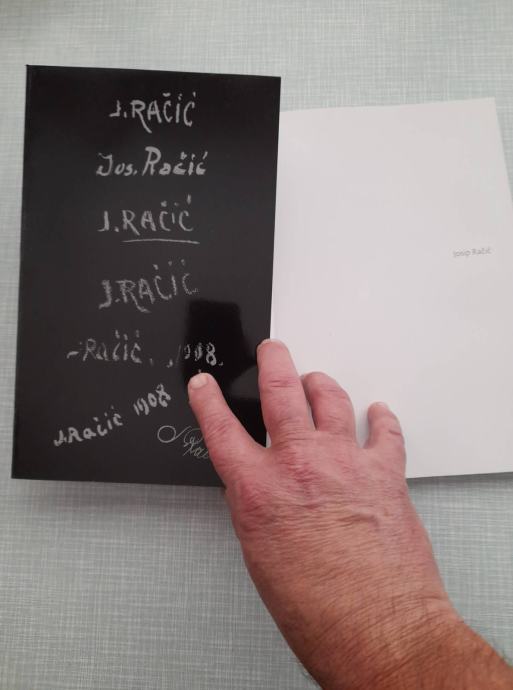 J.RAČIĆ
Jos. Račić
J.RAČIĆ
J.RAČIĆ
Račić. 1908.
J.Račić 1908
Josip Račić